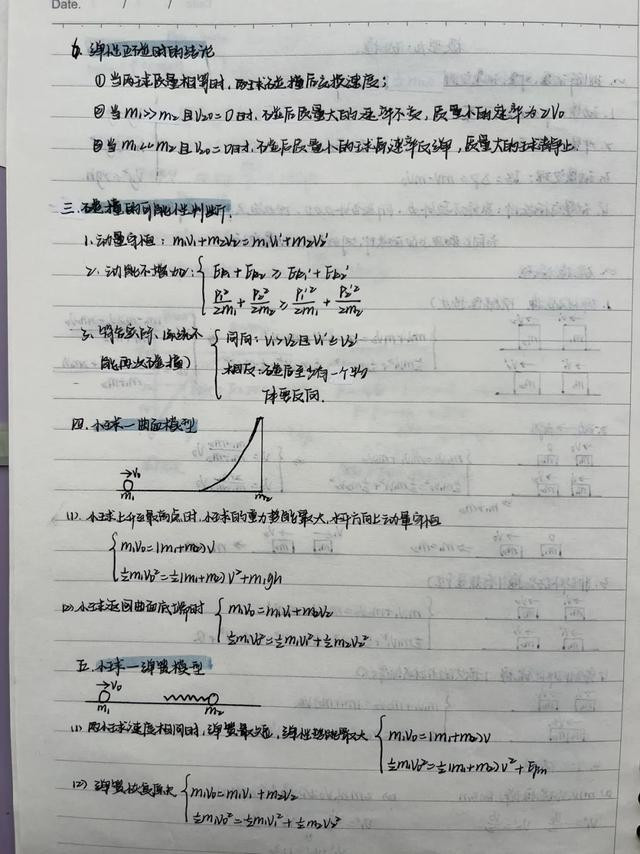 Date.        /        /
6. 弹性正碰时的结论
① 当两球质量相等时,两球碰撞后交换速度;
② 当m₁>>m₂且V₂₀=0时,碰后质量大的速率不变,质量小的速率为2V₀
③ 当m₁<<m₂且V₂₀=0时,碰后质量小的球原速率反弹,质量大的球静止.
三、碰撞的可能性判断.
1.动量守恒:m₁V₁+m₂V₂=m₁V₁'+m₂V₂'
2.动能不增加: Ek₁+Ek₂≥Ek₁'+Ek₂'
P₁²/2m₁+P₂²/2m₂≥P₁'²/2m₁+P₂'²/2m₂
3. 符合实际 不能再次碰撞)
同向:V₁>V₂且V₁'≤V₂'
相反:碰后至少有一个物体要反向.
四、小球—曲面模型
→V₀
m₁ m₂
(1).小球上升至最高点时,小球的重力势能最大,水平方向上动量守恒
m₁V₀=(m₁+m₂)V
½m₁V₀²=½(m₁+m₂)V²+m₁gh
(2)小球返回曲面底端时 m₁V₀=m₁V₁+m₂V₂
½m₁V₀²=½m₁V₁²+½m₂V₂²
五.小球—弹簧模型
→V₀
m₁ m₂
(1) 两小球速度相同时,弹簧最短,弹性势能最大 m₁V₀=(m₁+m₂)V
½m₁V₀²=½(m₁+m₂)V²+Epm
(2) 弹簧恢复原长 m₁V₀=m₁V₁+m₂V₂
½m₁V₀²=½m₁V₁²+½m₂V₂²